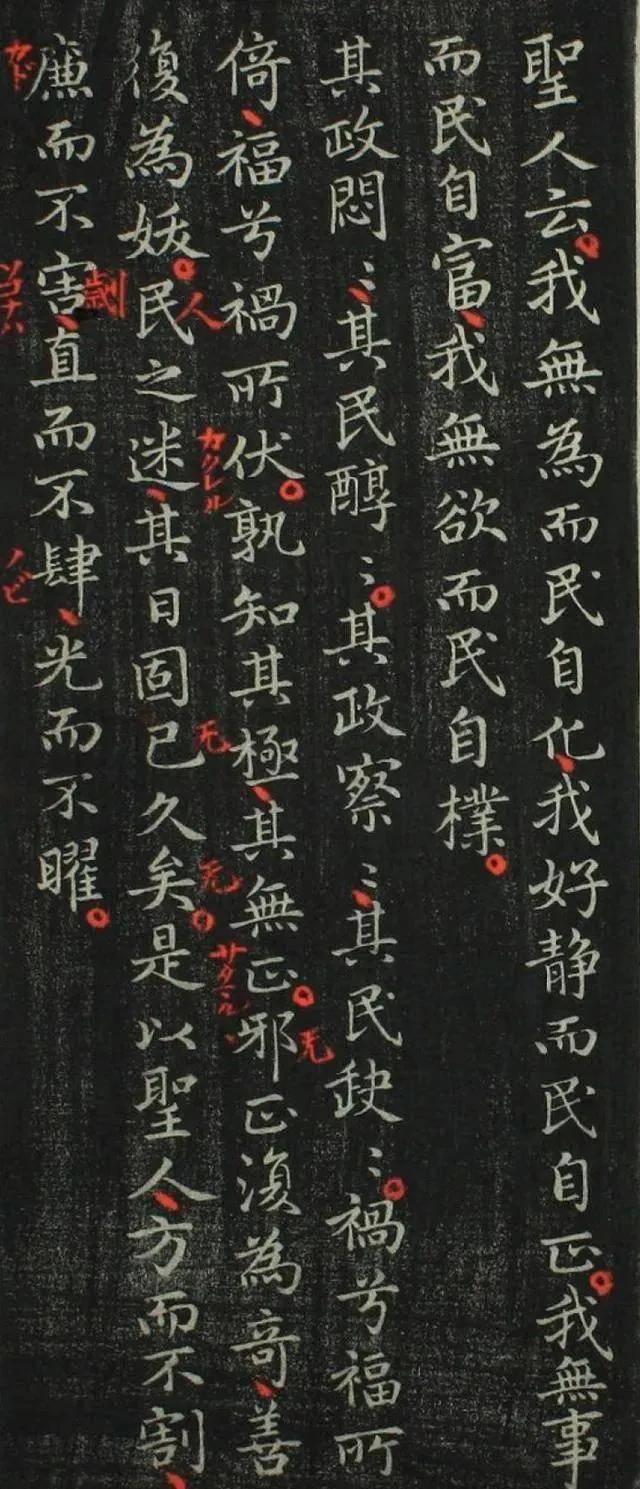 聖人云我無為而民自化我好静而民自正我無事
而民自富我無欲而民自樸
其政悶〻其民醇〻其政察〻其民缺〻禍兮福所
倚福兮禍所伏孰知其極其無正邪正復為奇善
復為妖民之迷其日固已久矣是以聖人方而不割
廉而不害直而不肆光而不曜
人
カクレル
无
无
无
劌
カド
ノビ